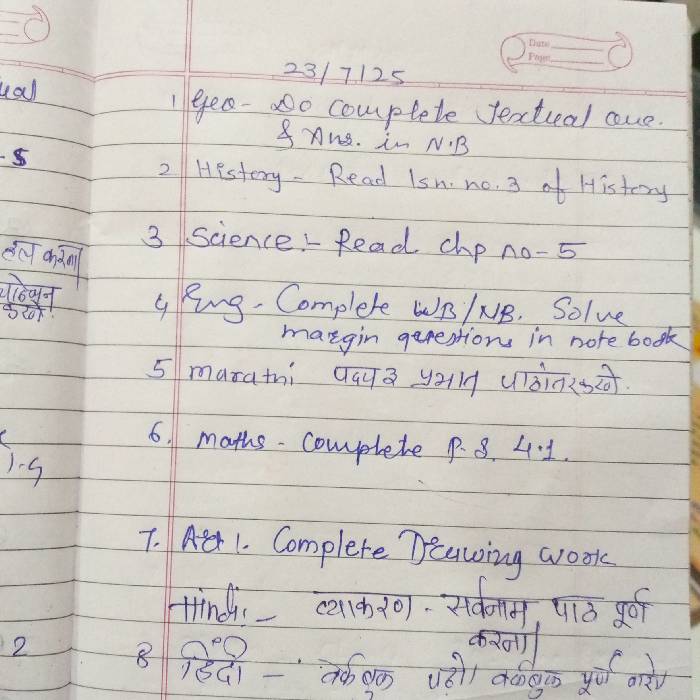 Date
Page
23/7/25
ual
1 Geo - Do complete Textual que.
& Ans. in N.B
- 5
2 History - Read lsn. no. 3 of History
3 Science :- Read chp no - 5
हल करना
4 Eng - Complete WB/NB. Solve
margin questions in note book
5 marathi पद्य
6. maths - Complete P.S. 4.1.
7. Art 1. Complete Drawing work
Hindi :- व्याकरण - सर्वनाम पाठ पूर्ण
करना।
2
8 हिंदी - वर्कबुक पढ़ो। वर्कबुक पूर्ण